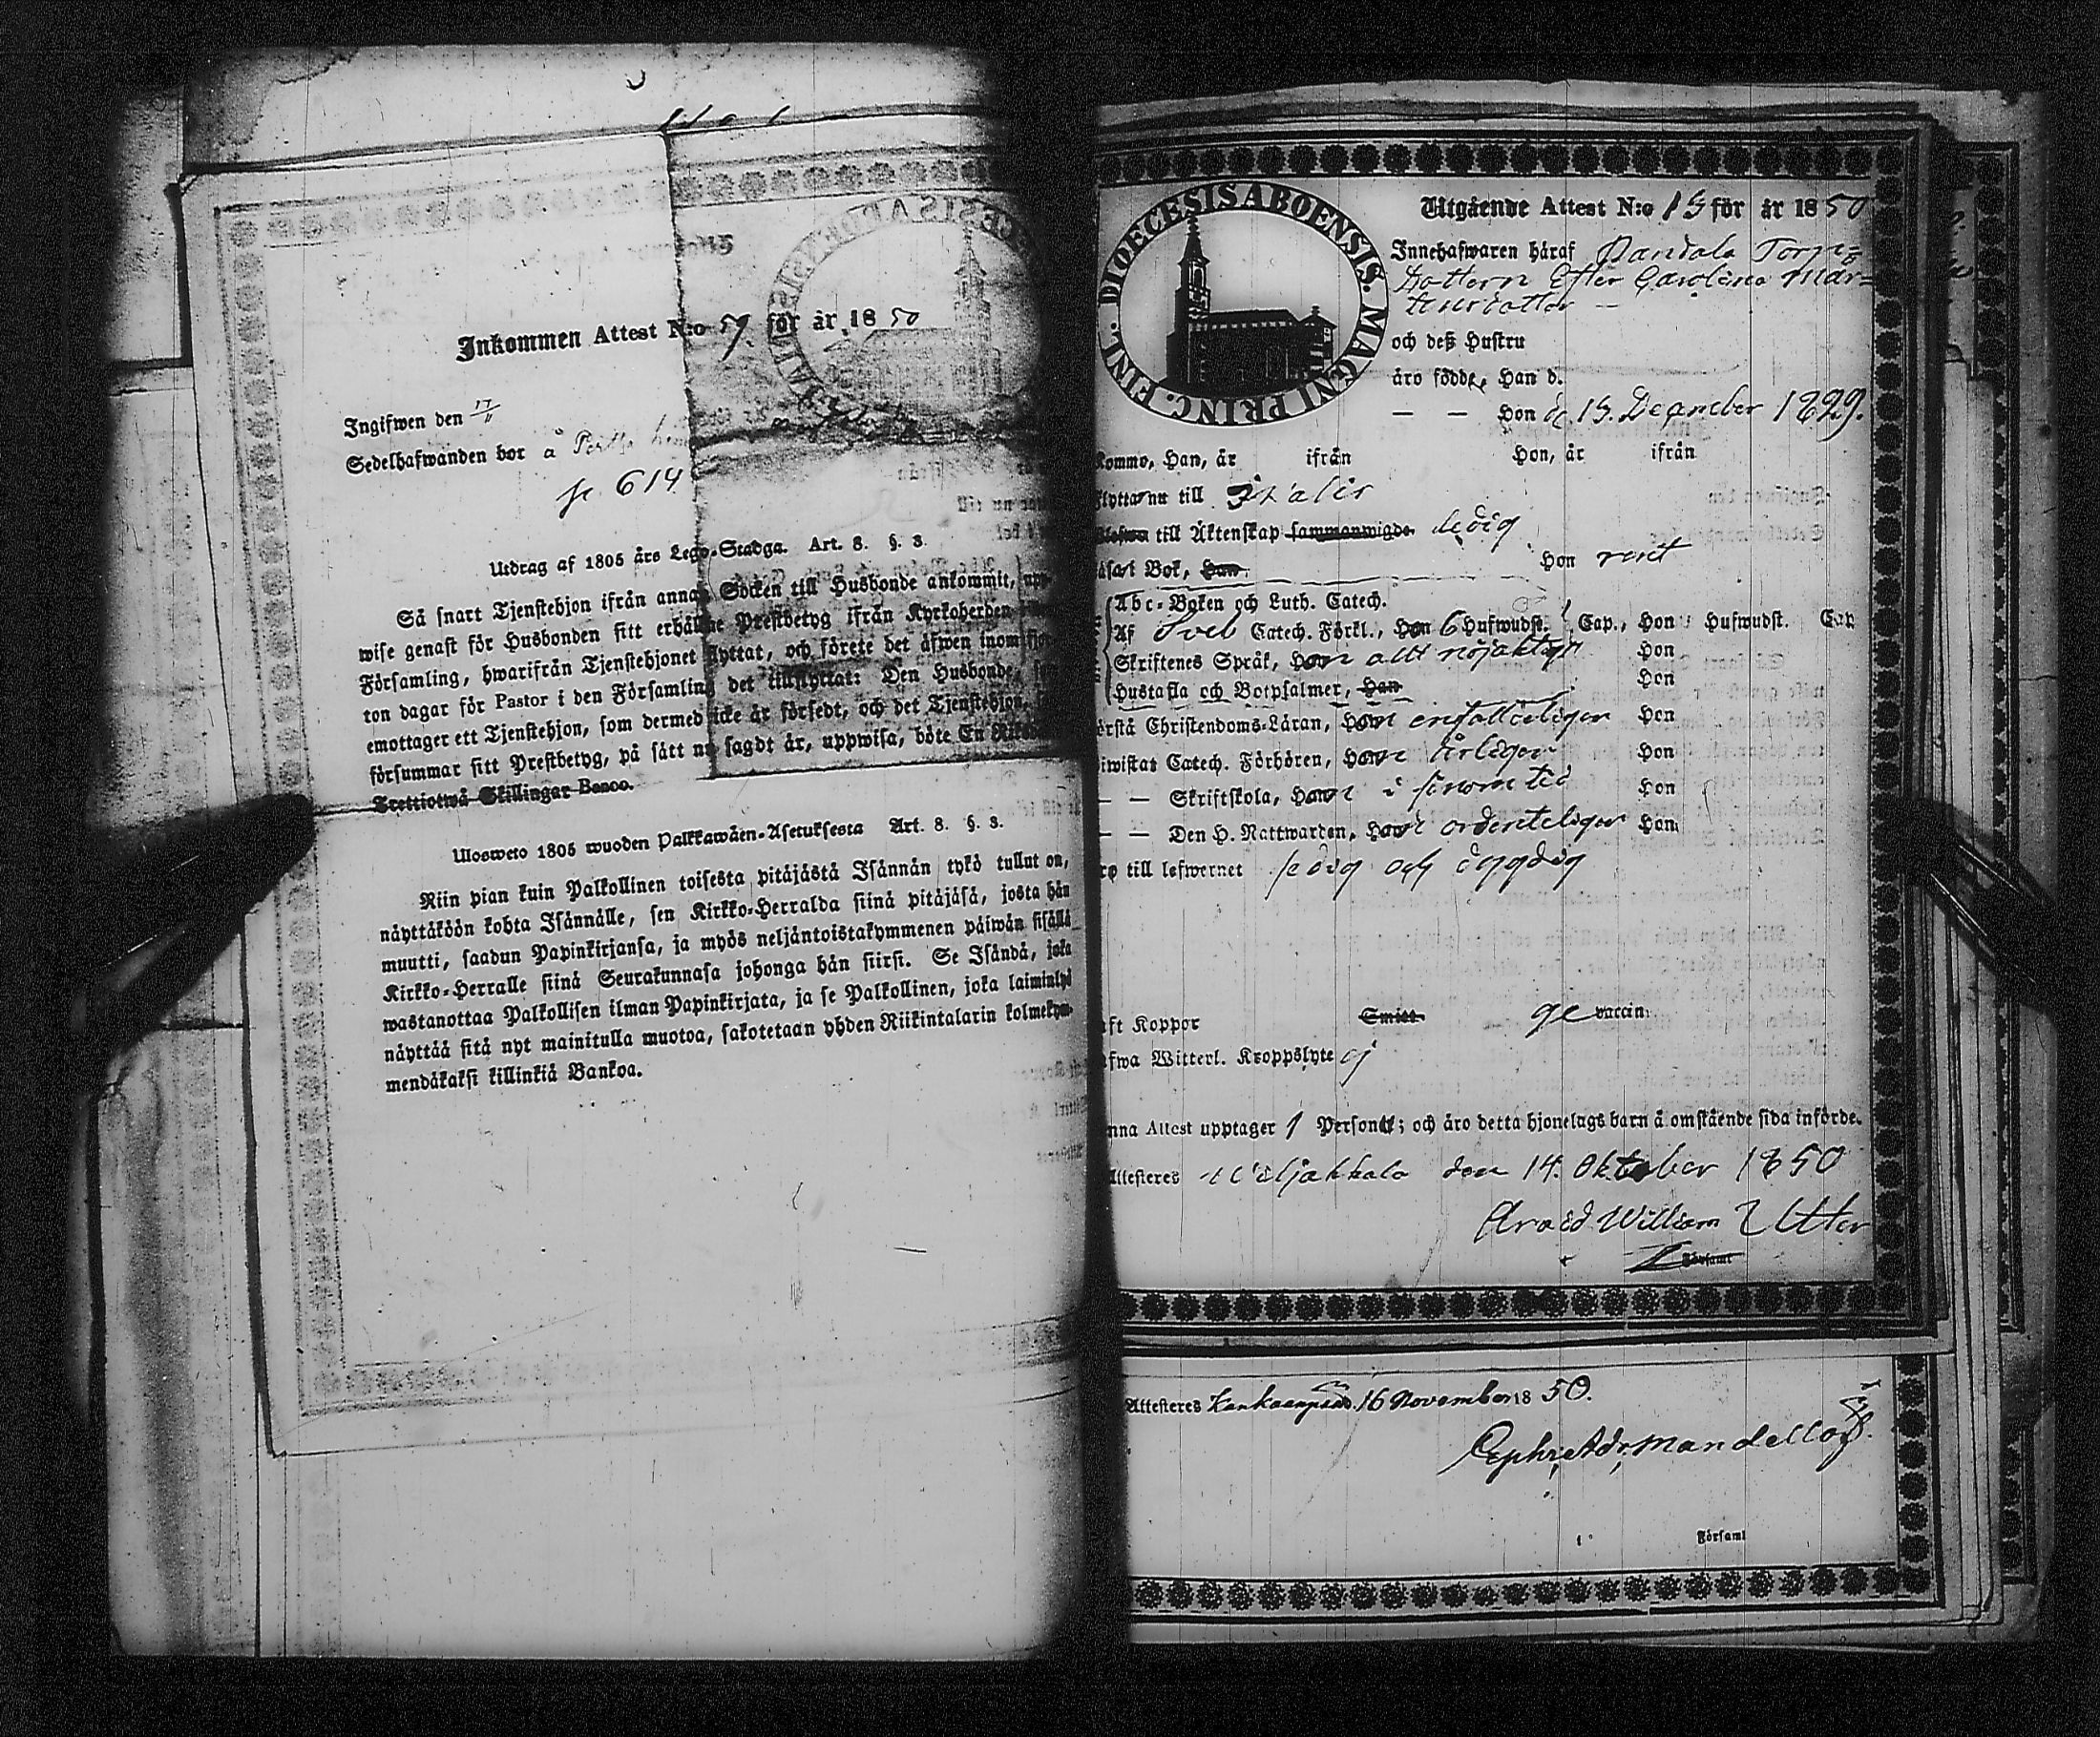 Inkommen Attest N:o 57. för år 18 50
Ingifwen den 17/11
Sedelhafwanden bor å
p 614
Utdrag af 1805 års Lego-Stadga. Art. 8. §. 3.
Så snart Tjenstehjon ifrån annan Socken till Husbonde ankommit,
wise genast för Husbonden sitt erhållne Prestbetyg ifrån Kyrkoherden
Församling, hwarifrån Tjenstehjonet flyttat, och förete det äfwen inom
ton dagar för Pastor i den Församling det tillflyttat: Den Husbonde,
emottager ett Tjenstehjon, som dermed icke är försedt, och det Tjenstehjon,
försummar sitt Prestbetyg, på sätt nu sagdt är, uppwisa, böte En
Trettiotwå Skillingar Banco.
Ulosweto 1805 wuoden Palkkawäen-Asetuksesta Art. 8. §. 3.
Niin pian kuin Palkollinen toisesta pitäjästä Isännän tykö tullut on,
näyttäköön kohta Isännälle, sen Kirkko-Herralda siinä pitäjäsä, josta hän
muutti, saadun Papinkirjansa, ja myös neljäntoistakymmenen päiwän sisällä
Kirkko-Herralle siinä Seurakunnasa johonga hän siirsi. Se Isändä, joka
wastanottaa Palkollisen ilman Papinkirjata, ja se Palkollinen, joka laiminlyö
näyttää sitä nyt mainitulla muotoa, sakotetaan yhden Riikintalarin kolmekym-
mendäkaksi killinkiä Bankoa.
DIOECESIS ABOENSIS. MAGNI PRINC. FINL.
Utgående Attest N:o 15 för år 18 50
Innehafwaren häraf Torp-
Dottern Ester Carolina Mår-
tensdotter
och deß Hustru
äro födde, Han d.
— — Hon d. 15. December 1829.
Kommo, Han, år ifrån Hon, år ifrån
flytta nu till Ikalis
till Äktenskap sammanwigde ledig
i Bok, Han Hon rent
Abc-Boken och Luth. Catech.
Af Sveb Catech. Förkl., Hon 6 Hufwudst. Cap., Hon Hufwudst. Cap
Skriftenes Språk, Hon allt nöjaktigt Hon
Hustafla och Botpsalmer, Han Hon
Christendoms-Läran, Hon enfalldeligen Hon
Catech. Förhören, Hon årligen Hon
— — Skriftskola, Hon i sinom tid Hon
— — Den H. Nattwarden, Hon ordenteligen Hon
till lefwernet sedig och dygdig
Koppor Smitt. ge vaccin.
Witterl. Kroppslyte ej
Attest upptager 1 Person; och äro detta hjonelags barn å omstående sida införde.
Attesteres Wiljakkala den 14. Oktober 1850
Arvid William Utter
Församl
Attesteres Kankaanpää d. 16 November 18 50.
Ephr. Adr. Mandellöf.
Församl